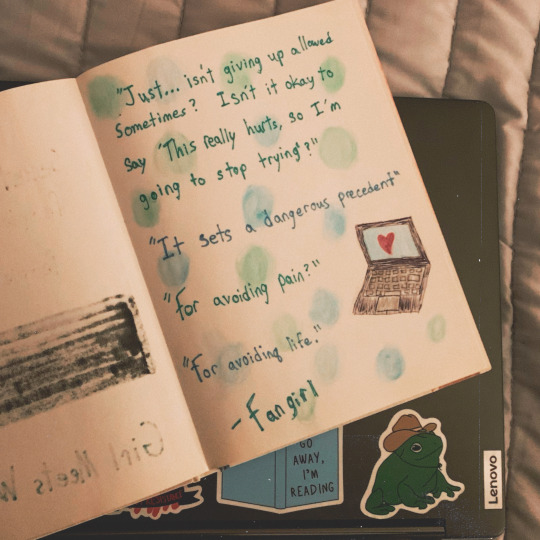 "Just... isn't giving up allowed
sometimes? Isn't it okay to
say 'This really hurts, so I'm
going to stop trying'?"
"It sets a dangerous precedent"
"For avoiding pain?"
"For avoiding life."
-Fangirl
Girl Meets
GO
AWAY,
I'M
READING
Lenovo